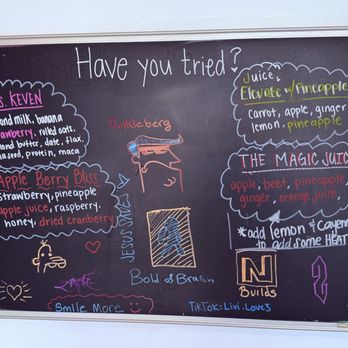 Have you tried?
S. KEVEN
ond milk, banana
rawberry, rolled oats,
ond butter, date, flax,
ia seed, protein, maca
Apple Berry Bliss
strawberry, pineapple
apple juice, raspberry,
honey, dried cranberry
Juice
Elevate w/Pineapple
Carrot, apple, ginger
lemon, pineapple
THE MAGIC JUIC
apple, beet, pineapple
ginger, orange juice.
*add lemon & cayenn
to add some HEAT
JESUS SAVES
Bold & Brash
N
Builds
Smile More
TikTok: Livi.Loves